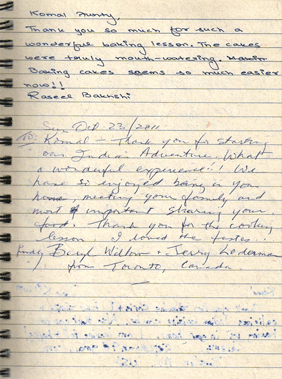 Komal Aunty,
Thank you so much for such a
wonderful baking lesson. The cakes
were truly mouth-watering.
Baking cakes seems so much easier
now!!
Raseel Bakhshi
Sun Oct 23/2011
To: Komal - Thank you for starting
our Indian Adventure. What
a wonderful experience!! We
have so enjoyed being in your
home meeting your family and
most important sharing your
food. Thank you for the cooking
lesson I loved the tastes.
Beryl Wilton + Jerry Lederman
from Toronto, Canada.